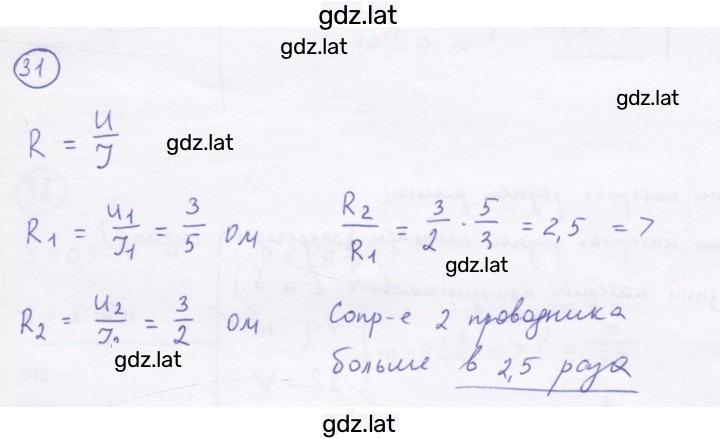 gdz.lat
gdz.lat
31
gdz.lat
R = U/I
gdz.lat
R₁ = U₁/I₁ = 3/5 Ом
R₂/R₁ = 3/2 · 5/3 = 2,5 =>
gdz.lat
gdz.lat
R₂ = U₂/I₂ = 3/2 Ом
Сопр-е 2 проводника
gdz.lat
больше в 2,5 раза
gdz.lat